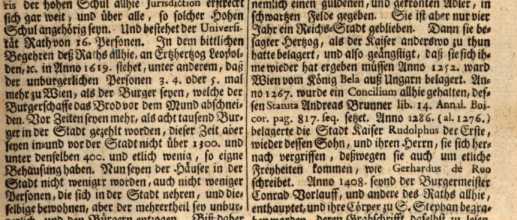 ris der hohen Schul allhie Jurisdiction erstreckt
sich gar weit, und über alle, so solcher Hohen
Schul angehörig seyn. Und bestehet der Universi-
tät Rath von 16. Personen. In dem bittlichen
Begehren deß Raths allhie, an Ertzhertzog Leopol-
den, sc. in Anno 1619. stehet, unter anderem, daß
der unburgerlichen Personen 3. 4. oder 5. mal
mehr zu Wien, als der Burger seyen, welche der
Burgerschafft das Brod vor dem Mund abschnei-
den. Vor Zeiten seyen mehr, als acht tausend Bur-
ger in der Stadt gezehlt worden, dieser Zeit aber
seyen in und vor der Stadt nicht über 1300. und
unter denselben 400. und etlich wenig, so eigne
Behausung haben. Nun seyen der Häuser in der
Stadt nicht weniger worden, auch nicht weniger
Personen, die sich in der Stadt nehren, und die-
selbige bewohnen, aber der mehrertheil sey unbur-
nemlich einen guldenen, und gekrönten Adler, in
schwartzen Felde gegeben. Sie ist aber nur vier
Jahr ein Reichs-Stadt geblieben. Dann sie be-
sagter Hertzog, als der Kaiser anderswo zu thun
hatte belagert, und also geängstigt, daß sie sich ih-
me wieder hat ergeben müssen Anno 1252. ward
Wien vom König Bela auß Ungarn belagert. An-
no 1267. wurde ein Concilium allhie gehalten, des-
sen Statuta Andreas Brunner lib. 14. Annal. Boi-
cor. pag. 817. seq. setzt. Anno 1286. (al. 1276.)
belagerte die Stadt Kaiser Rudolphus der Erste,
wieder dessen Sohn, und ihren Herrn, sie sich her-
nach vergriffen, deßwegen sie auch um etliche
Freyheiten kommen, wie Gerhardus de Roo
schreibet. Anno 1408. seynd der Burgermeister
Conrad Vorlauff, und andere des Raths allhie,
enthauptet, und ihre Cörper zu S. Stephan begra-